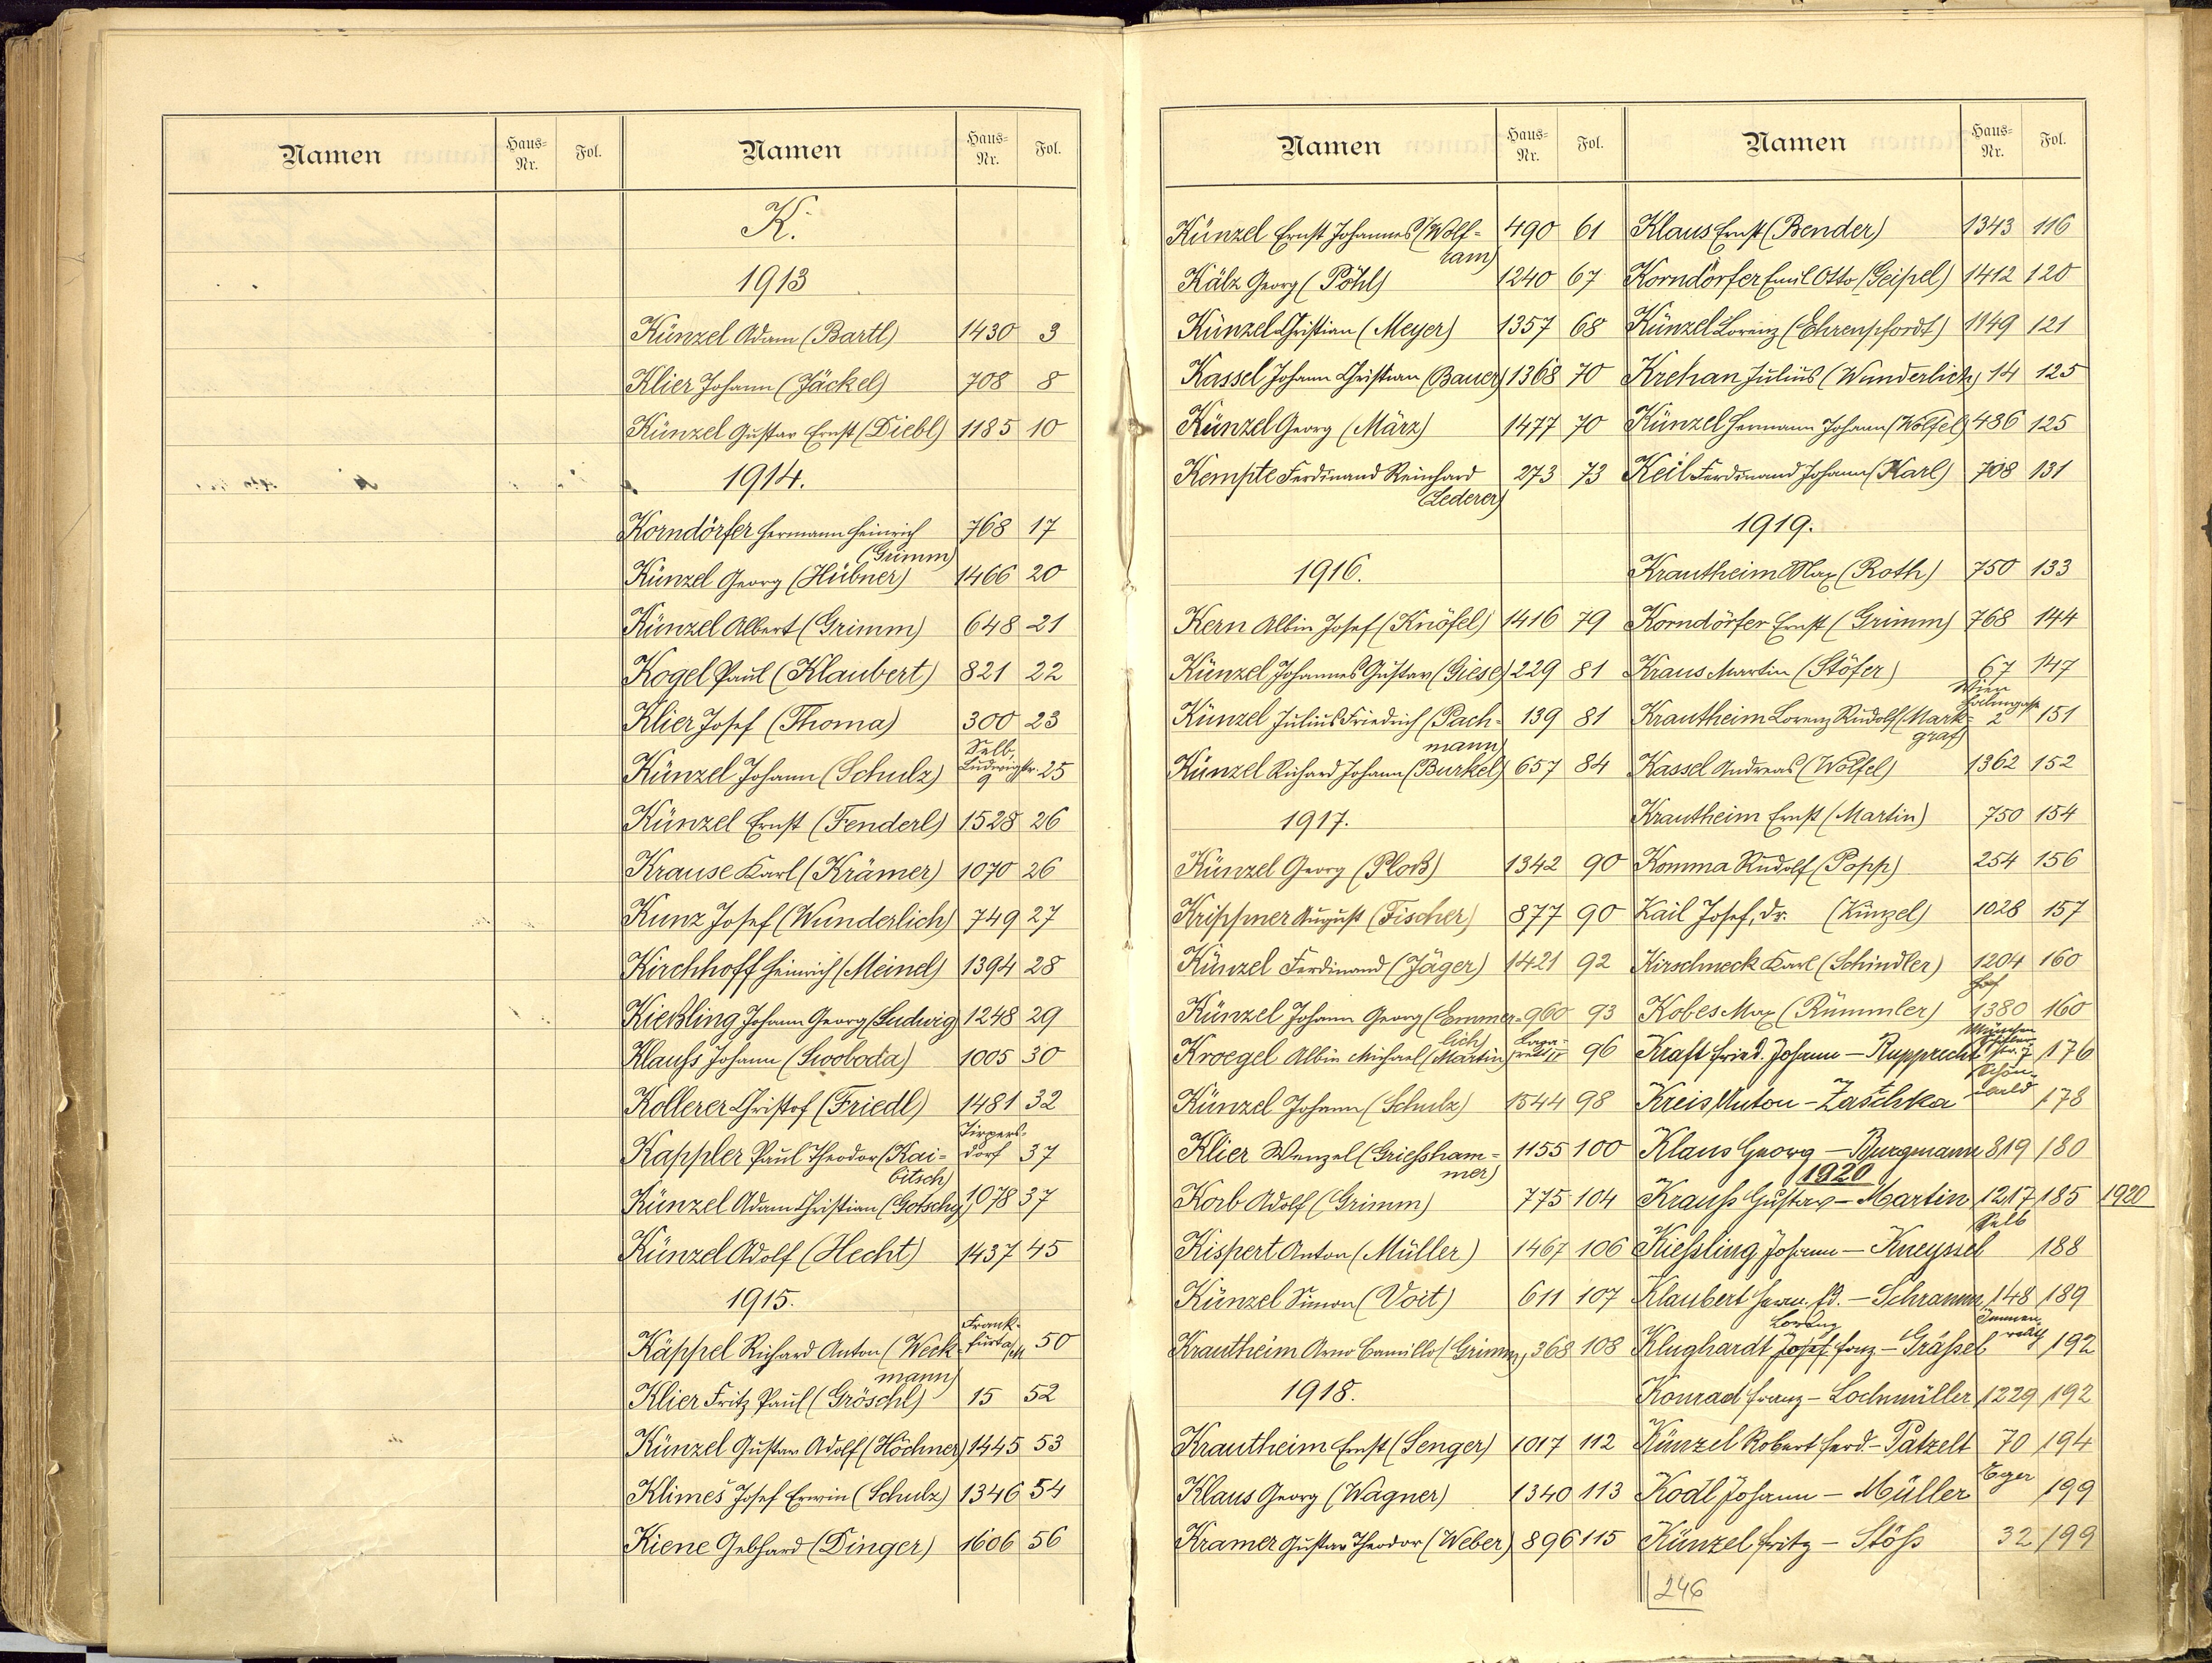 Namen Haus-Nr. Fol. Namen Haus-Nr. Fol.
K.
1913
Künzel Adam (Bartl) 1430 3
Klier Johann (Jäckel) 708 8
Künzel Gustav Ernst (Diebl) 1185 10
1914.
Korndörfer Hermann Heinrich 768 17
(Grimm)
Künzel Georg (Hübner) 1466 20
Künzel Albert (Grimm) 648 21
Kogel Paul (Klaubert) 821 22
Klier Josef (Thoma) 300 23
Selb,
Künzel Johann (Schulz) Ludwigstr. 25
9
Künzel Ernst (Fenderl) 1528 26
Krause Karl (Krämer) 1070 26
Kunz Josef (Wunderlich) 749 27
Kirchhoff Heinrich (Meinel) 1394 28
Kießling Johann Georg (Ludwig) 1248 29
Klauß Johann (Swoboda) 1005 30
Kollerer Christof (Friedl) 1481 32
Tirpers-
Kappler Paul Theodor (Kai- dorf 37
bitsch)
Künzel Adam Christian (Gotschy) 1078 37
Künzel Adolf (Hecht) 1437 45
1915.
Frank-
Käppel Richard Anton (Weck- furt a/M 50
mann)
Klier Fritz Paul (Gröschl) 15 52
Künzel Gustav Adolf (Höchner) 1445 53
Klimeš Josef Erwin (Schulz) 1346 54
Kiene Gebhard (Dinger) 1606 56
Namen Haus-Nr. Fol.
Künzel Ernst Johannes (Wolf- 490 61
ram)
Kälz Georg (Pöhl) 1240 67
Künzel Christian (Meyer) 1357 68
Kassel Johann Christian (Bauer) 1368 70
Künzel Georg (März) 1477 70
Kempte Ferdinand Reinhard 273 73
(Lederer)
1916.
Kern Albin Josef (Knöfel) 1416 79
Künzel Johannes Gustav (Giese) 229 81
Künzel Julius Friedrich (Pach- 139 81
mann)
Künzel Richard Johann (Burkel) 657 84
1917.
Künzel Georg (Ploß) 1342 90
Krippner August (Fischer) 877 90
Künzel Ferdinand (Jäger) 1421 92
Künzel Johann Georg (Emmer- 960 93
lich) Laza-
Kroegel Albin Michael (Martin) rett II 96
Künzel Johann (Schulz) 1544 98
Klier Wenzel (Grießham- 1155 100
mer)
Korb Adolf (Grimm) 775 104
Kispert Anton (Müller) 1467 106
Künzel Simon (Voit) 611 107
Krautheim Arno Camillo (Grimm) 368 108
1918.
Krautheim Ernst (Senger) 1017 112
Klaus Georg (Wagner) 1340 113
Kramer Gustav Theodor (Weber) 896 115
Namen Haus-Nr. Fol.
Klaus Ernst (Bender) 1343 116
Korndörfer Emil Otto (Geipel) 1412 120
Künzel Lorenz (Ehrenpfordt) 1149 121
Krehan Julius (Wunderlich) 14 125
Künzel Hermann Johann (Wölfel) 486 125
Keil Ferdinand Johann (Karl) 708 131
1919.
Krautheim Max (Roth) 750 133
Korndörfer Ernst (Grimm) 768 144
Kraus Martin (Stöfer) 67 147
Wien
Krautheim Lorenz Rudolf (Mark- 2 151
graf)
Kassel Andreas (Wölfel) 1362 152
Krautheim Ernst (Martin) 750 154
Komma Rudolf (Popp) 254 156
Kail Josef, Dr. (Künzel) 1028 157
Kirschneck Karl (Schindler) 1204 160
Hof
Kobes Max (Rümmler) 1380 160
München
Kraft Fried. Johann - Rupprecht str. 7 176
Schön-
Kreis, Anton - Zaschka wald 178
Klaus Georg - Burgmann 819 180
1920
Krauß Gustav - Martin 1217 185 1920
Selb
Kießling Johann - Kneyssel 188
Klaubert Herm. Ed. - Schramm 148 189
Lorenz
Klughardt Josef Franz - Gräßel 192
Konrad Franz - Lochmüller 1229 192
Künzel Robert Ferd. - Patzelt 70 194
Eger
Kodl Johann - Müller 199
Künzel Fritz - Stöß 32 199
246